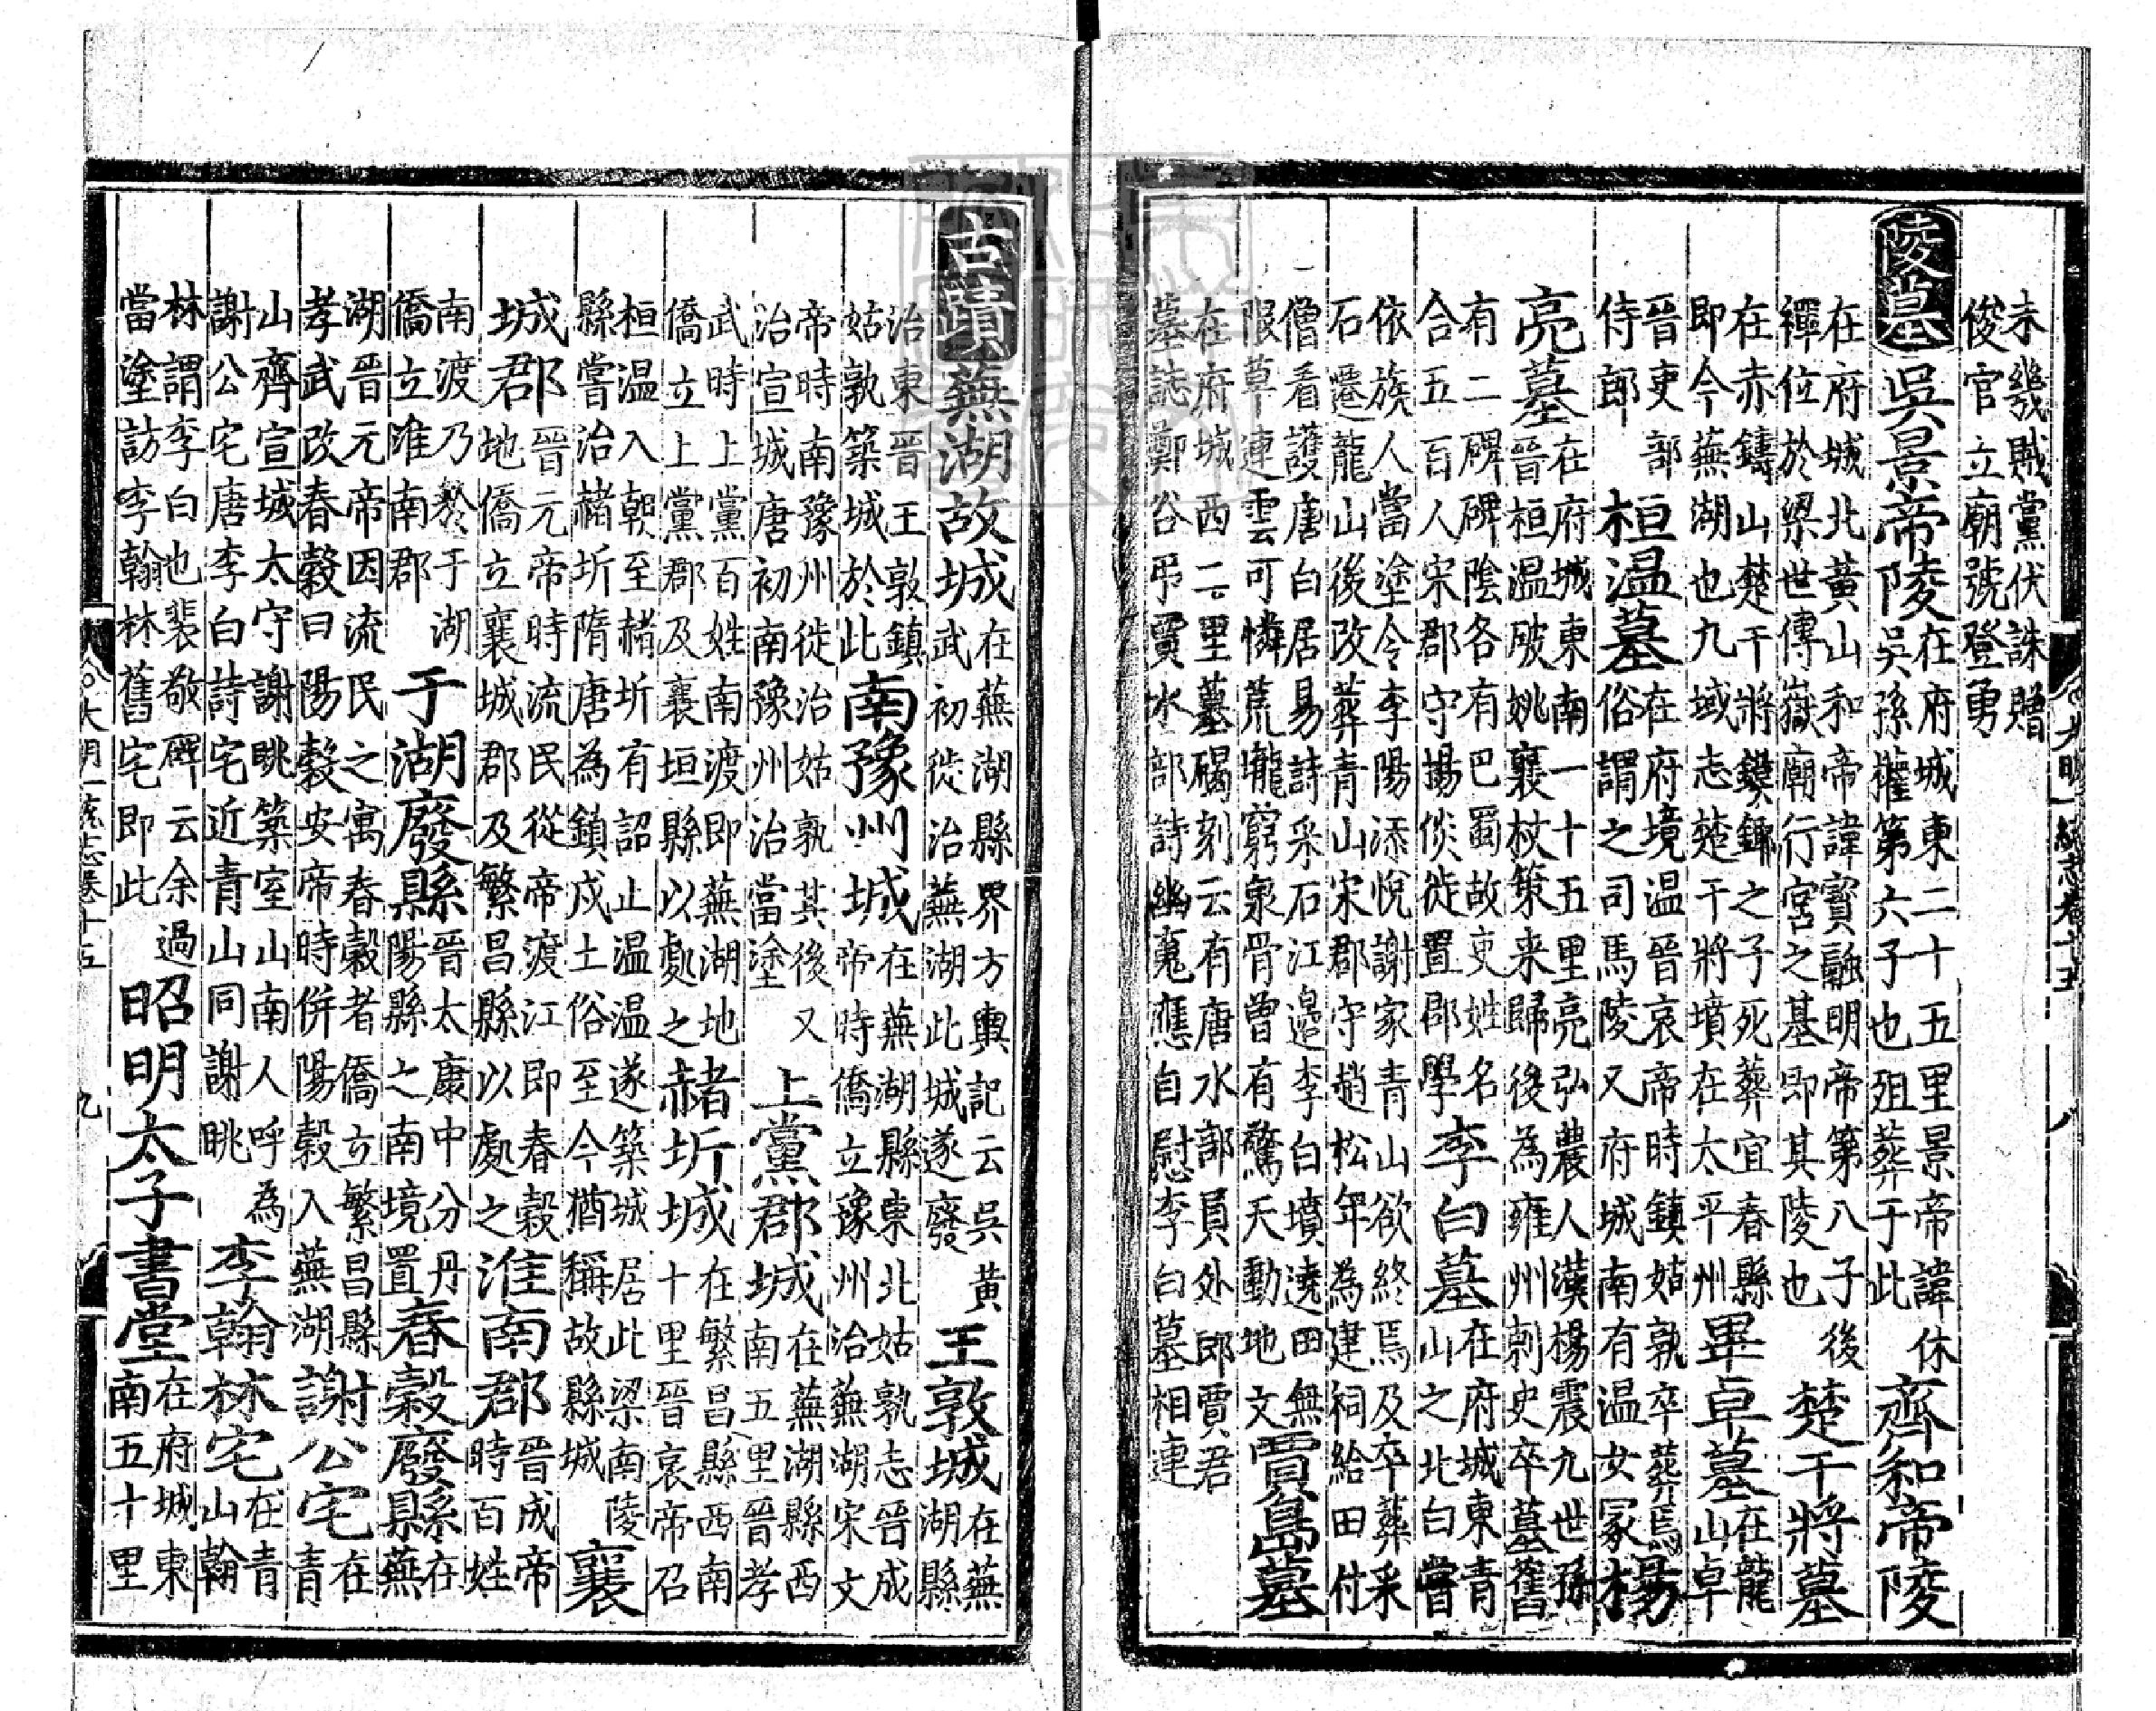 未幾賊黨伏誅贈
俊官立廟號登勇
陵墓 吳景帝陵
在府城東二十五里景帝諱休
吳孫權第六子也殂葬于此
齊和帝陵
在府城北黃山和帝諱寶融明帝第八子後
禪位於梁世傳嶽廟行宮之基即其陵也
楚干將墓
在赤鑄山楚干將鏌鋣之子死葬宜春縣
即今蕪湖也九域志楚干將墳在太平州
畢卓墓
在龍
山卓
晉吏部
侍郎
桓温墓
在府境温晉哀帝時鎮姑孰卒葬焉
俗謂之司馬陵又府城南有温女冢
楊
亮墓
在府城東南一十五里亮弘農人漢楊震九世孫
晉桓温破姚襄杖策来歸後為雍州刺史卒墓舊
有二碑碑隂各有巴蜀故吏姓名
合五百人宋郡守楊倓徙置郡學
李白墓
在府城東青
山之北白嘗
依族人當塗令李陽悅謝家青山欲終焉及卒葬采
石遷龍山後改葬青山宋郡守趙松年為建祠給田付
僧看護唐白居易詩采石江邉李白墳遶田無
限草連雲可憐荒壠窮泉骨曾有驚天動地文
賈島墓
在府城西二里墓碣刻云有唐水部員外郎賈君
墓誌鄭谷弔賈水部詩幽䰟應自慰李白墓相連
大明一統志卷十五 八
古蹟 蕪湖故城
在蕪湖縣界方輿記云吳黃
武初徙治蕪湖此城遂廢
王敦城
在蕪
湖縣
治東晉王敦鎮
姑孰築城於此
南豫州城
在蕪湖縣東北姑孰志晉成
帝時僑立豫州治蕪湖宋文
帝時南豫州徙治姑孰其後又
治宣城唐初南豫州治當塗
上黨郡城
在蕪湖縣西
南五里晉孝
武時上黨百姓南渡即蕪湖地
僑立上黨郡及襄垣縣以處之
赭圻城
在繁昌縣西南
十里晉哀帝召
桓温入朝至赭圻有詔止温温遂築城居此梁南陵
縣嘗治赭圻隋唐為鎮戍土俗至今猶稱故縣城
襄
城郡
晉元帝時流民從帝渡江即春穀
地僑立襄城郡及繁昌縣以處之
淮南郡
晉成帝
時百姓
南渡乃於于湖
僑立淮南郡
于湖廢縣
晉太康中分丹
陽縣之南境置
春穀廢縣
在
蕪
湖晉元帝因流民之寓春穀者僑立繁昌縣
孝武改春穀曰陽穀安帝時併陽穀入蕪湖
謝公宅
在
青
山齊宣城太守謝眺築室山南人呼為
謝公宅唐李白詩宅近青山同謝眺
李翰林宅
在青
山翰
林謂李白也裴敬碑云余過
當塗訪李翰林舊宅即此
昭明太子書堂
在府城東
南五十里
大明一統志卷十五 九